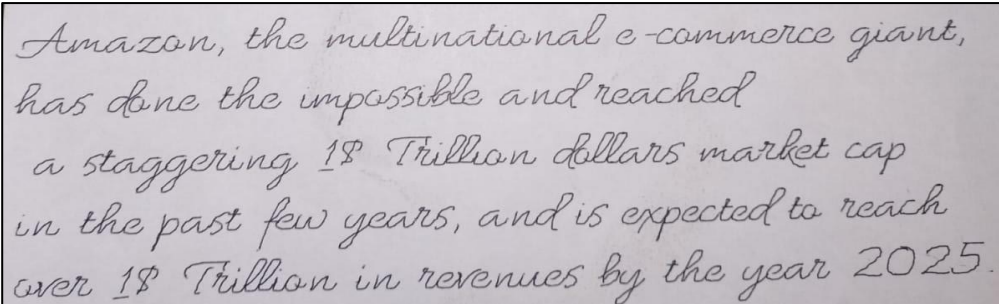 Amazon, the multinational e-commerce giant,
has done the impossible and reached
a staggering 1$ Trillion dollars market cap
in the past few years, and is expected to reach
over 1$ Trillion in revenues by the year 2025.